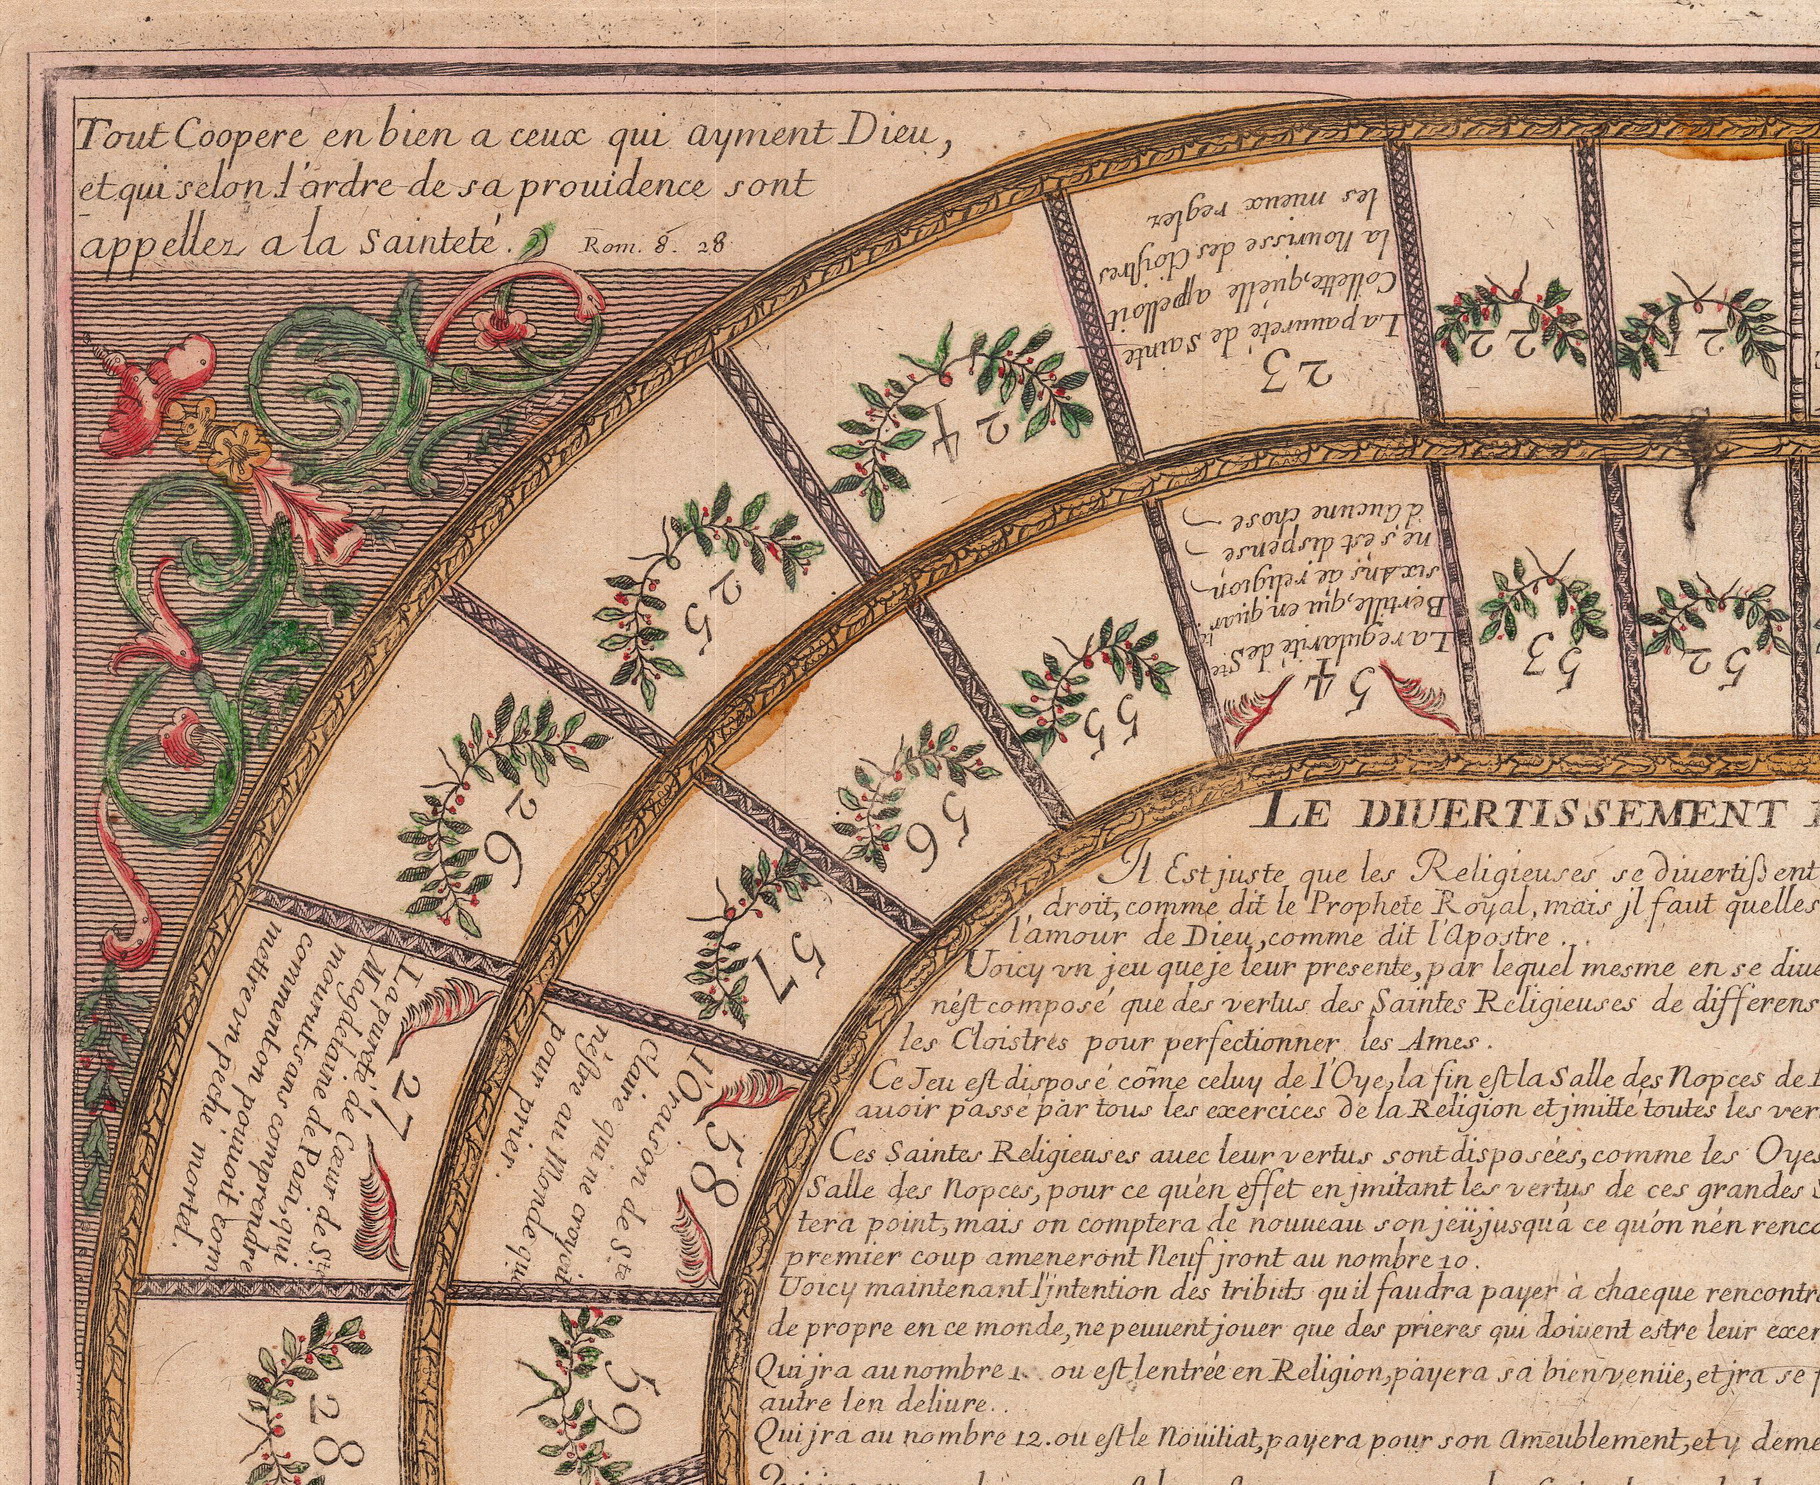 Tout Coopere en bien a ceux qui ayment Dieu,
et qui selon l'ordre de sa prouidence sont
appellez a la Sainteté. Rom. 8. 28
21
22
23
La pauureté de Sainte
Collette, qu'elle appelloit
la Nourisse des Cloistres
les mieux reglez
24
25
26
27
La pureté de Cœur de Ste
Magdelaine de Pazzi, qui
mourut sans comprendre
comment on pouuoit com
mettre vn peché mortel.
28
52
53
54
La regularité de Ste
Bertille, qui en quar
six Ans de religion
ne s'est dispensé
d'Aucune chose
55
56
57
58
l'Oraison de Ste
Claire qui ne croyoit
n'estre au Monde que
pour prier.
59
LE DIUERTISSEMENT
Il Est juste que les Religieuses se diuertissent
droit, comme dit le Prophete Royal, mais jl faut quelles
l'amour de Dieu, comme dit l'Apostre.
Uoicy vn jeu que je leur presente, par lequel mesme en se diue
n'est composé que des vertus des Saintes Religieuses de differens
les Cloistres pour perfectionner les Ames.
Ce Jeu est disposé cõme celuy de l'Oye, la fin est la Salle des Nopces de l
auoir passé par tous les exercices de la Religion et jmitté toutes les ver
Ces Saintes Religieuses auec leur vertus sont disposées, comme les Oyes
Salle des Nopces, pour ce qu'en effet en jmitant les vertus de ces grandes S
tera point, mais on comptera de nouueau son jeu jusqu'à ce qu'on n'en renco
premier coup ameneront Neuf jront au nombre 10.
Uoicy maintenant l'jntention des tributs qu'il faudra payer à chacque rencontre
de propre en ce monde, ne peuuent jouer que des prieres qui doiuent estre leur exer
Qui jra au nombre 1. ou est lentrée en Religion, payera sa bien venüe, et jra se
autre len deliure.
Qui jra au nombre 12. ou est le Nouitiat, payera pour son Ameublement, et y deme